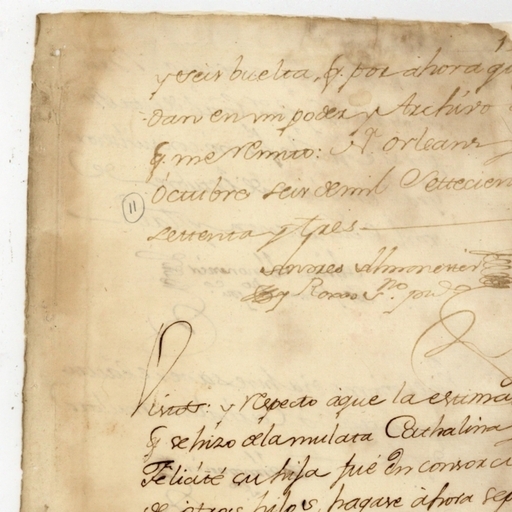 y seis buelta, q. por ahora qu
dan en mi poder y Archivo
q. me remito: Nª. Orleans
Octubre seis de mil Settecien
settenta y tres
11
Andres Almonester
y Roxas
Vistos: y respecto àque la estima
q. se hizo dela mulata Cathalina
Felicité su hija fué en consorci
de otros hijos, hagase àhora sep